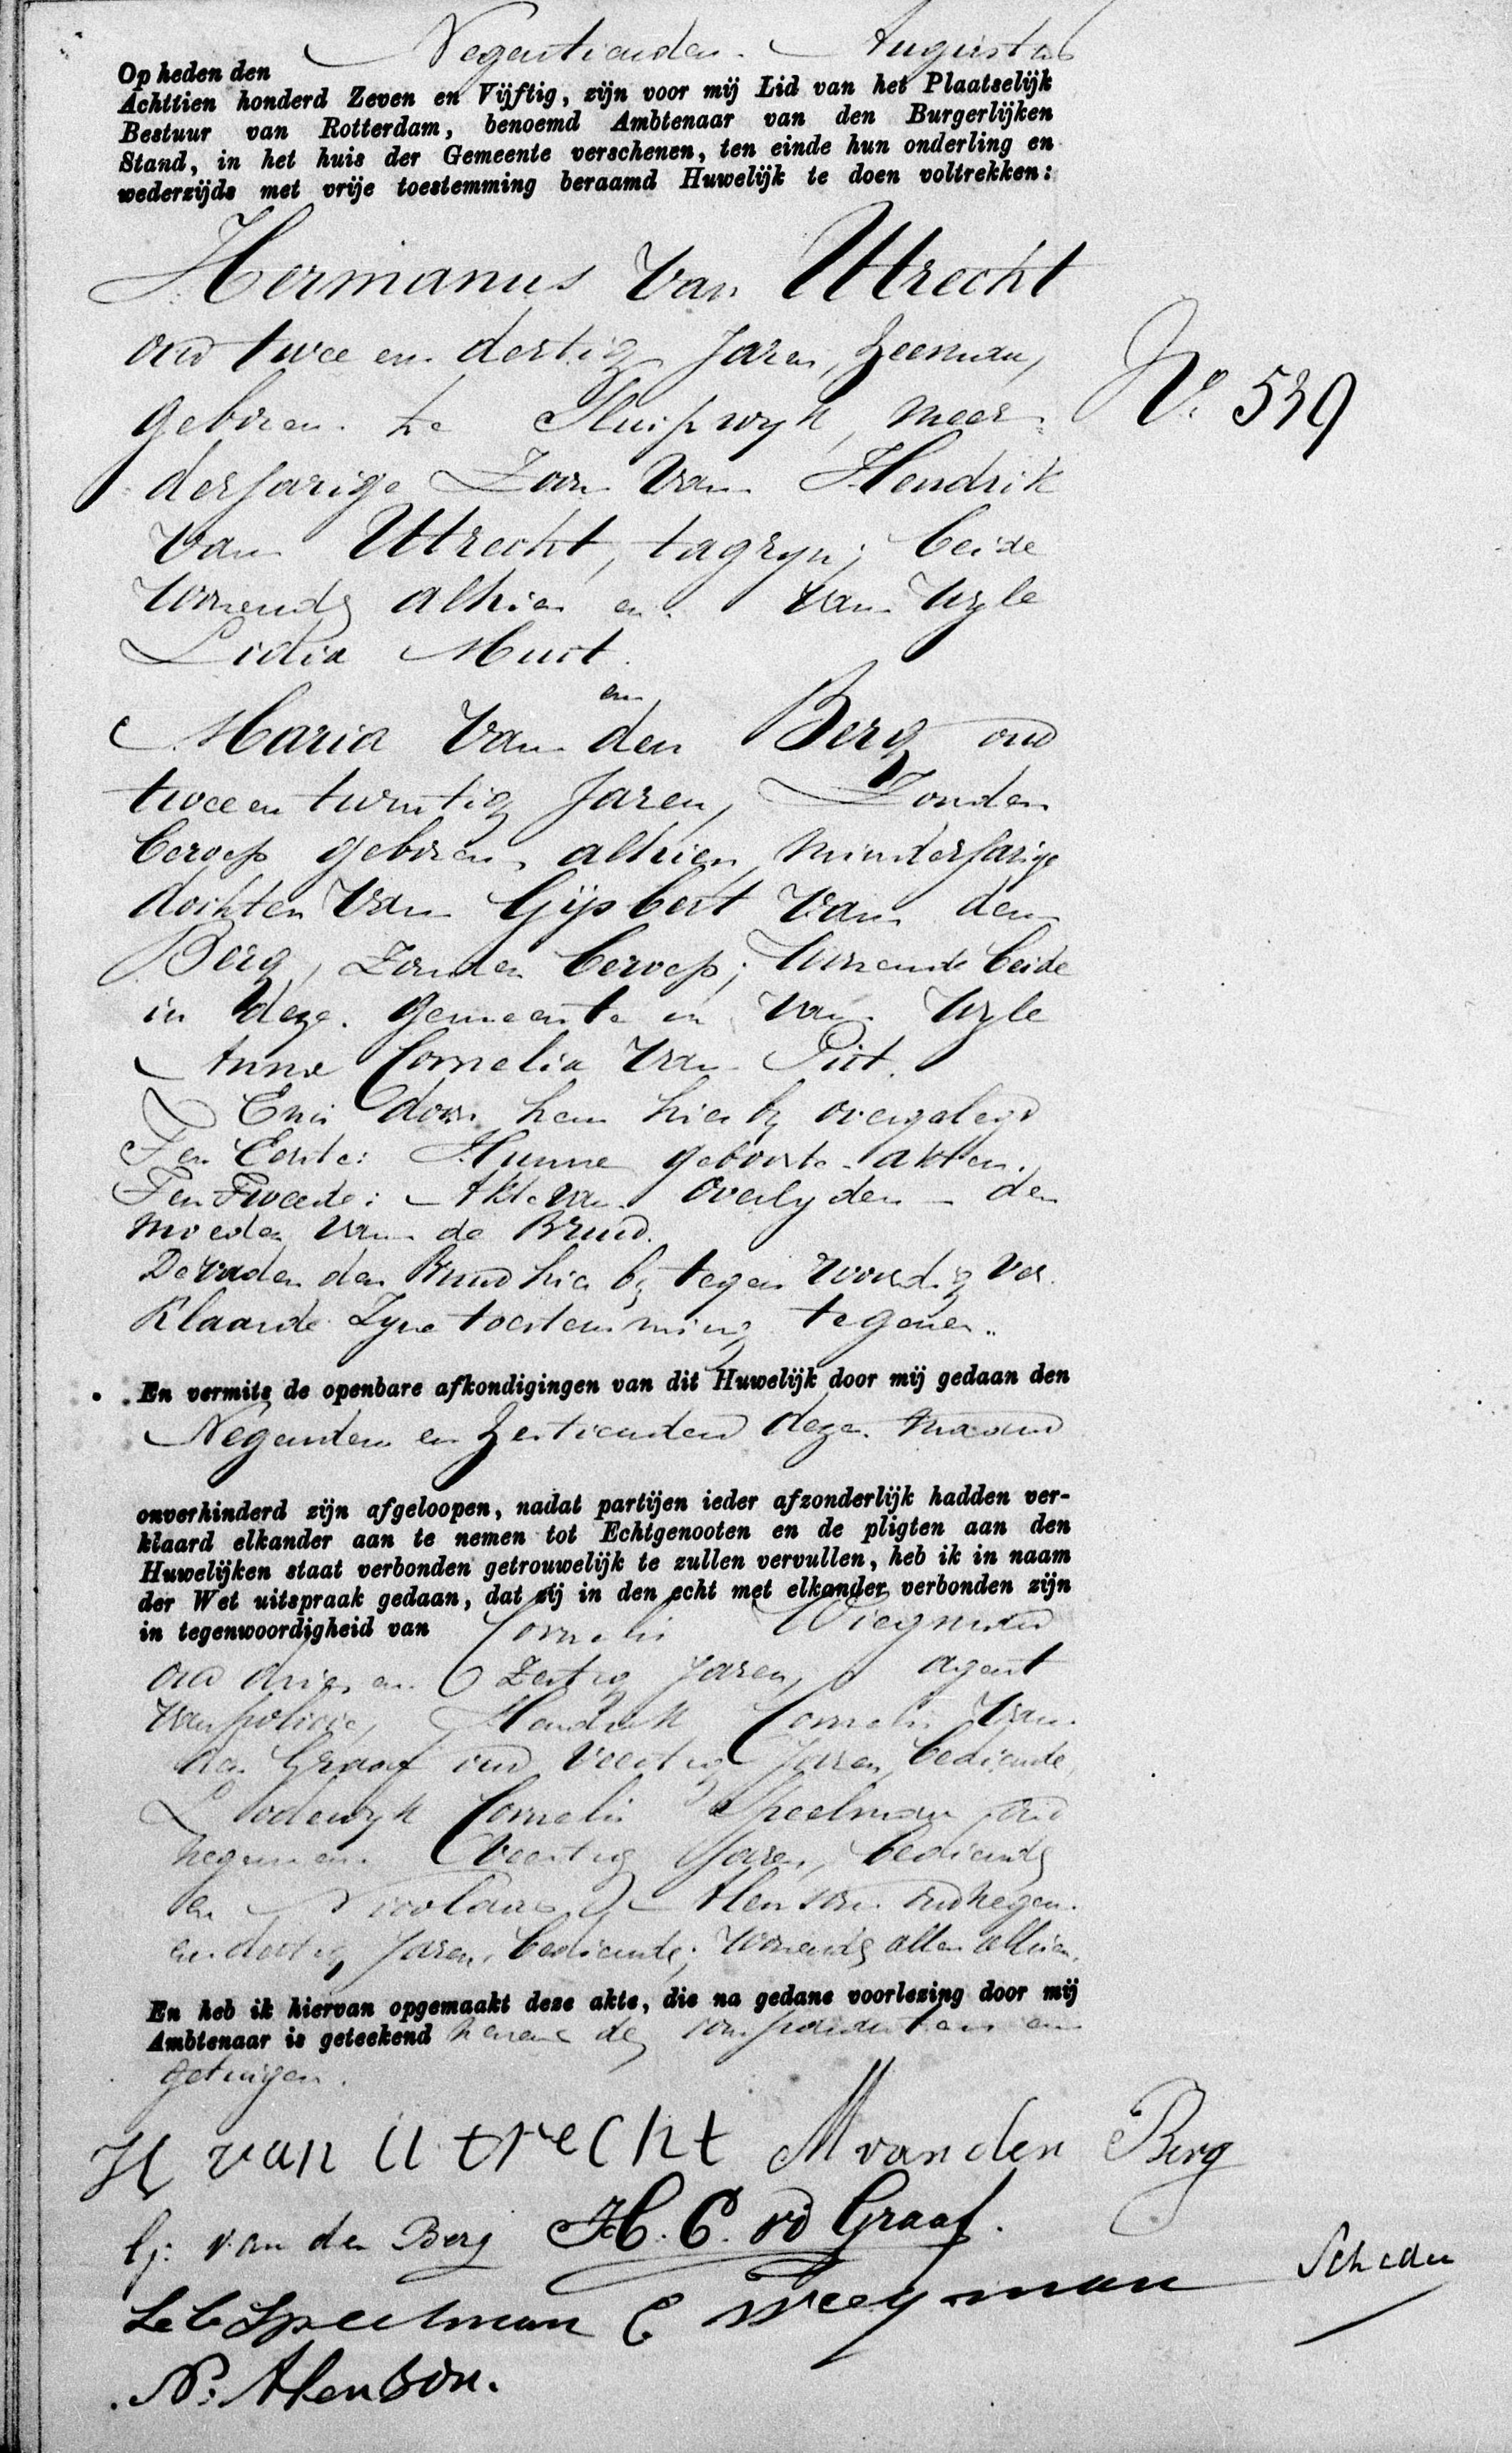 Negentienden Augustus
Op heden den
Achttien honderd Zeven en Vijftig, zijn voor mij Lid van het Plaatselijk
Bestuur van Rotterdam, benoemd Ambtenaar van den Burgerlijken
Stand, in het huis der Gemeente verschenen, ten einde hun onderling en
wederzijds met vrije toestemming beraamd Huwelijk te doen voltrekken:
Hermanus van Utrecht
oud twee en dertig Jaren, Zeeman,
geboren te Sluipwyk, meer-
No 539
derjarige Zoon van Hendrik
van Utrecht, tagryn; beide
wonende alhier en van wyle
Lidia Muit.
en
Maria van den Berg oud
twee en twintig Jaren, Zonder
beroep geboren alhier, minderjarige
dochter van Gijsbert van den
Berg, zonder beroep; wonende beide
in deze gemeente en van wyle
Anna Cornelia van Pit.
En is door hen hier by overgelegd
Ten Eerste: Hunne geboorte akten.
Ten Tweede: Akte van overlyden der
moeder van de Bruid.
De vader der Bruid hier by tegenwoordig ver-
klaarde Zyne toestemming te geven.
En vermits de openbare afkondigingen van dit Huwelijk door mij gedaan den
Negenden en Zestienden dezer maand
onverhinderd zijn afgeloopen, nadat partijen ieder afzonderlijk hadden ver-
klaard elkander aan te nemen tot Echtgenooten en de pligten aan den
Huwelijken staat verbonden getrouwelijk te zullen vervullen, heb ik in naam
der Wet uitspraak gedaan, dat zij in den echt met elkander verbonden zijn
in tegenwoordigheid van Cornelis
oud drie en Zestig Jaren, agent
van policie, Hendrik Cornelis van
der Graaf oud veertig Jaren, bediende,
Lodewyk Cornelis Speelman, oud
negen en veertig Jaren, bediende
en Nicolaas Alenson oud negen
en dertig Jaren, bediende; wonende allen alhier.
En heb ik hiervan opgemaakt deze akte, die na gedane voorlezing door mij
Ambtenaar is geteekend nevens de comparanten en
getuigen.
H van Utrecht M van den Berg
G: van den Berg H. C. vd Graaf.
L C Speelman C Weeyman
N: Alenson.